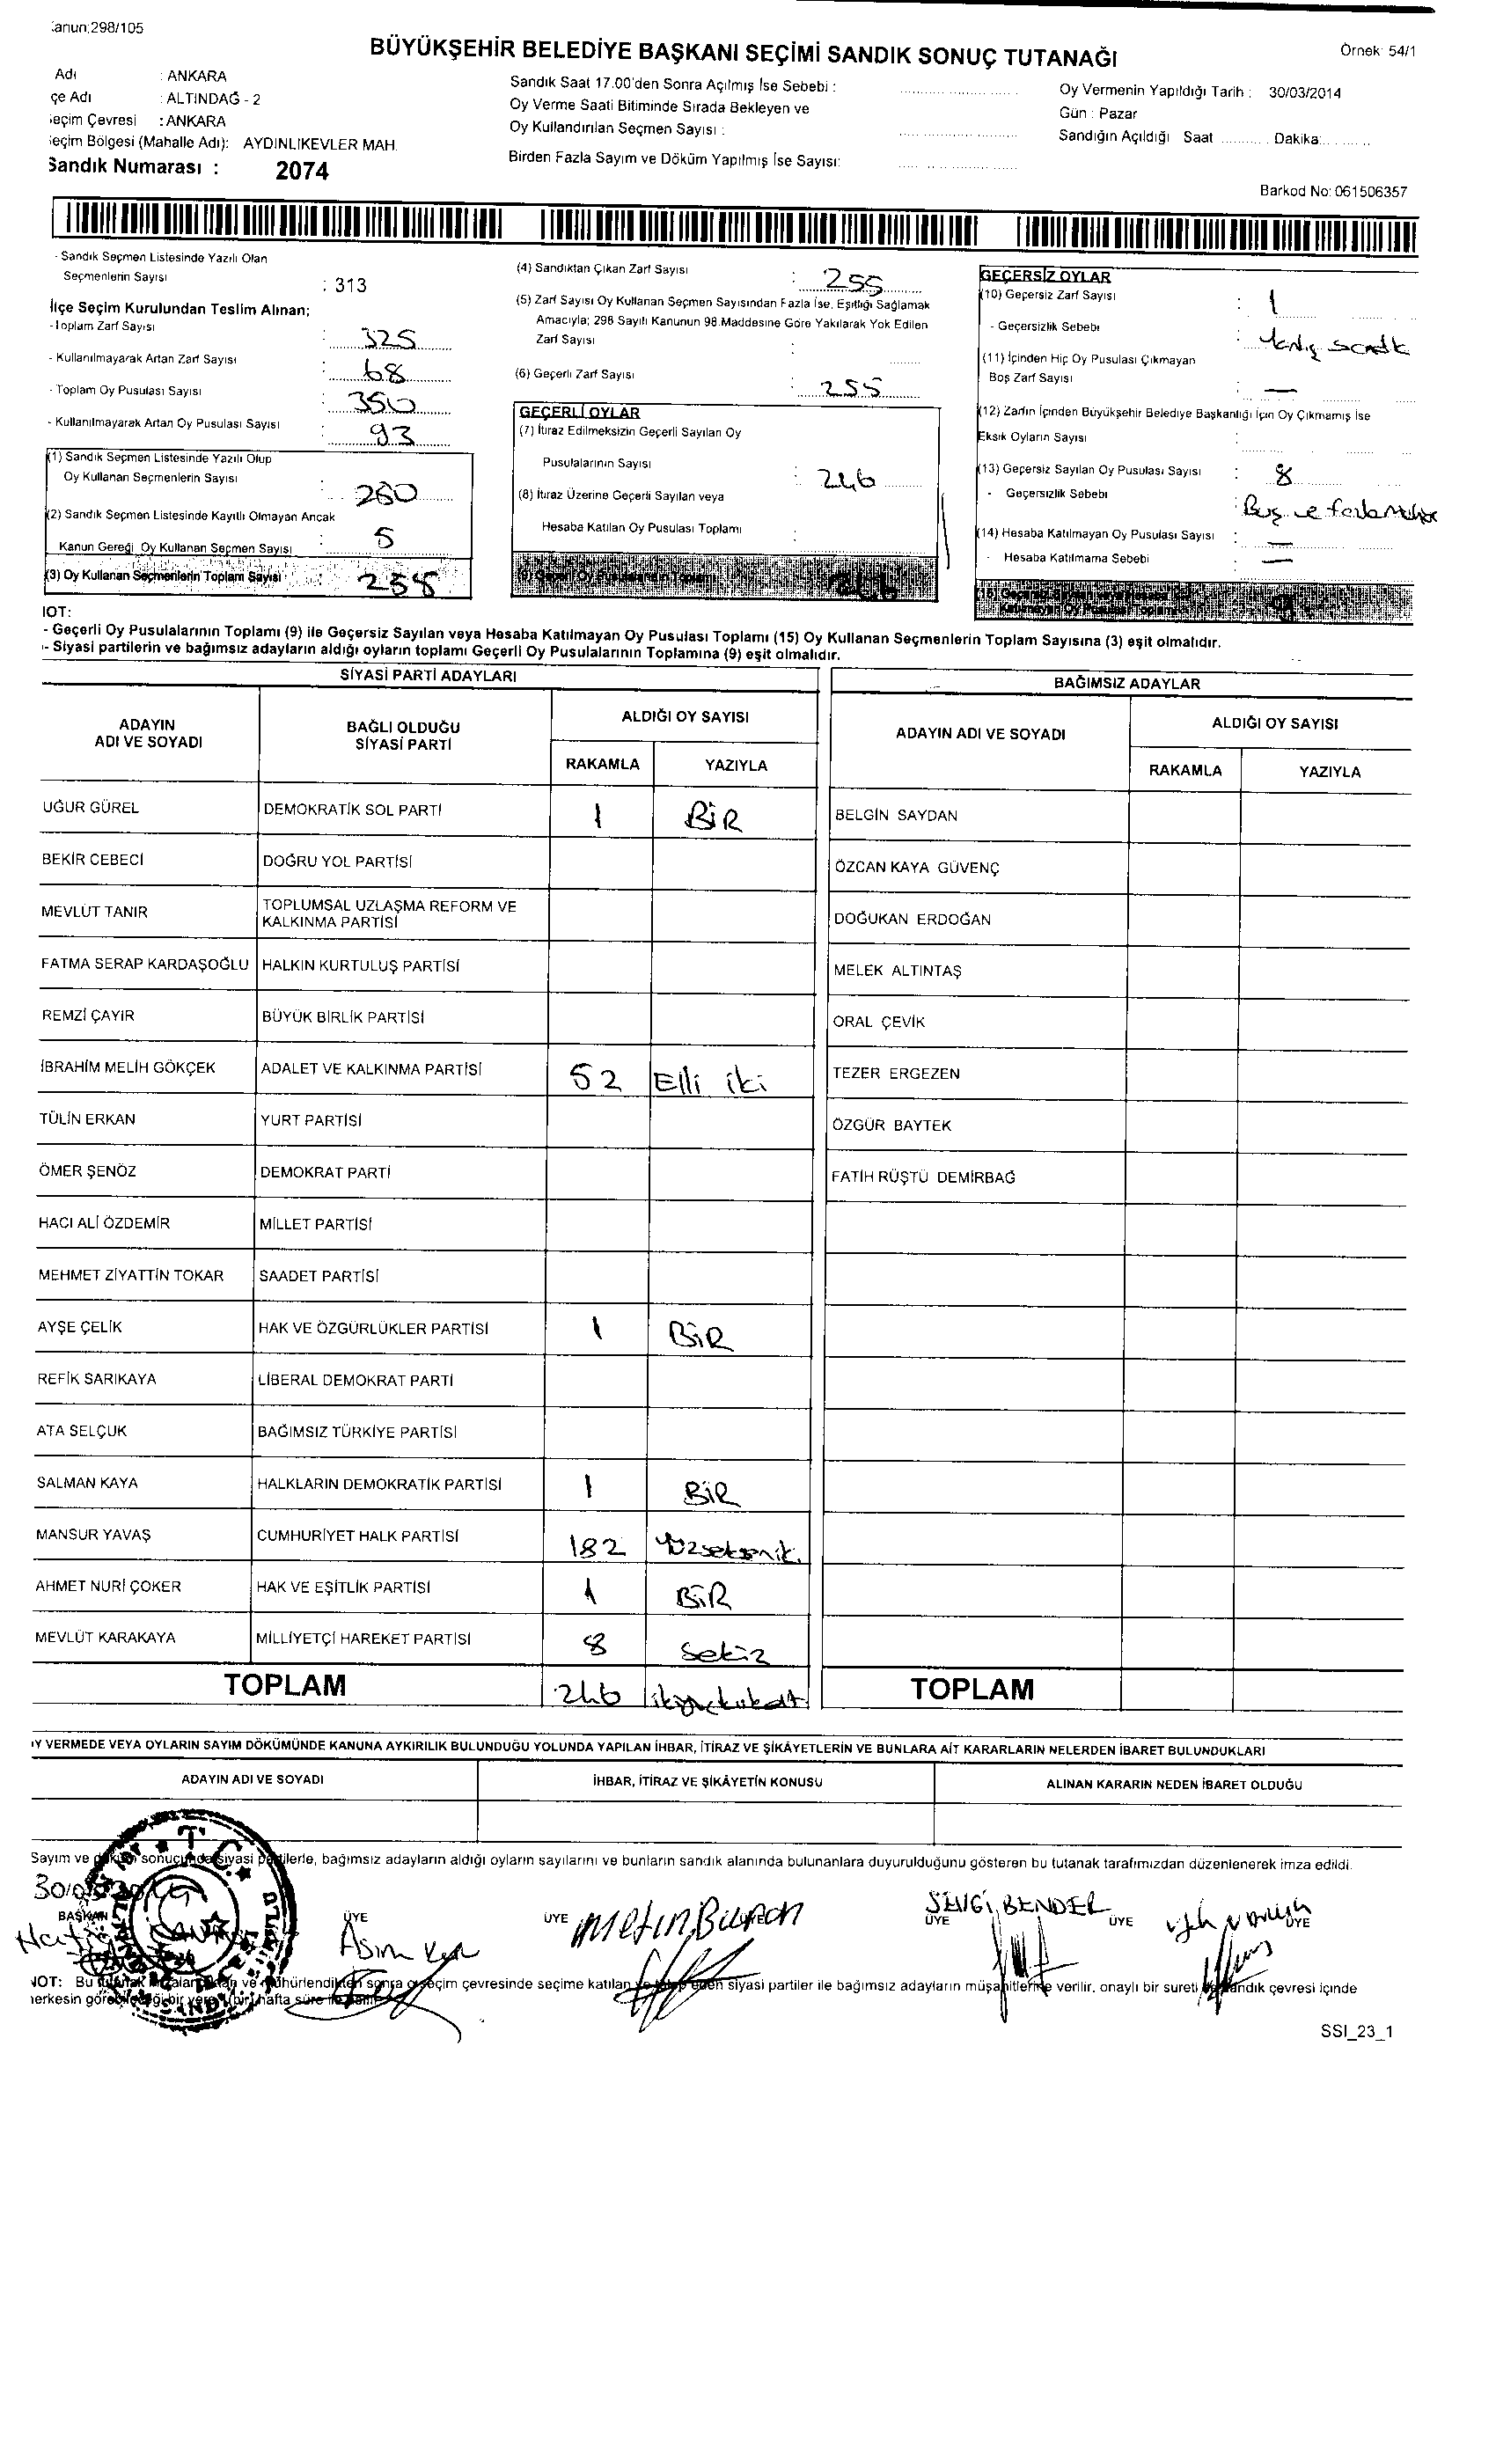 anun:298/105
BÜYÜKŞEHİR BELEDİYE BAŞKANI SEÇİMİ SANDIK SONUÇ TUTANAĞI
Örnek: 54/1
Adı : ANKARA
çe Adı : ALTINDAĞ - 2
eçim Çevresi : ANKARA
eçim Bölgesi (Mahalle Adı): AYDINLIKEVLER MAH.
Sandık Numarası : 2074
Sandık Saat 17.00'den Sonra Açılmış İse Sebebi :
Oy Verme Saati Bitiminde Sırada Bekleyen ve
Oy Kullandırılan Seçmen Sayısı :
Birden Fazla Sayım ve Döküm Yapılmış İse Sayısı:
Oy Vermenin Yapıldığı Tarih : 30/03/2014
Gün : Pazar
Sandığın Açıldığı Saat ........... Dakika:..........
Barkod No: 061506357
- Sandık Seçmen Listesinde Yazılı Olan
Seçmenlerin Sayısı : 313
İlçe Seçim Kurulundan Teslim Alınan;
-Toplam Zarf Sayısı : 325
- Kullanılmayarak Artan Zarf Sayısı : 68
- Toplam Oy Pusulası Sayısı : 350
- Kullanılmayarak Artan Oy Pusulası Sayısı : 93
(1) Sandık Seçmen Listesinde Yazılı Olup
Oy Kullanan Seçmenlerin Sayısı : 250
(2) Sandık Seçmen Listesinde Kayıtlı Olmayan Ancak
Kanun Gereği Oy Kullanan Seçmen Sayısı : 5
(3) Oy Kullanan Seçmenlerin Toplam Sayısı : 255
(4) Sandıktan Çıkan Zarf Sayısı : 255
(5) Zarf Sayısı Oy Kullanan Seçmen Sayısından Fazla İse, Eşitliği Sağlamak
Amacıyla; 298 Sayılı Kanunun 98.Maddesine Göre Yakılarak Yok Edilen
Zarf Sayısı :
(6) Geçerli Zarf Sayısı : 255
GEÇERLİ OYLAR
(7) İtiraz Edilmeksizin Geçerli Sayılan Oy
Pusulalarının Sayısı : 246
(8) İtiraz Üzerine Geçerli Sayılan veya
Hesaba Katılan Oy Pusulası Toplamı :
(9) Geçerli Oy Pusulalarının Toplamı 246
GEÇERSİZ OYLAR
(10) Geçersiz Zarf Sayısı : 1
- Geçersizlik Sebebi : Yanlış sandık
(11) İçinden Hiç Oy Pusulası Çıkmayan
Boş Zarf Sayısı : —
(12) Zarfın İçinden Büyükşehir Belediye Başkanlığı İçin Oy Çıkmamış İse
Eksik Oyların Sayısı :
(13) Geçersiz Sayılan Oy Pusulası Sayısı : 8
- Geçersizlik Sebebi : Boş ve fazla mühür
(14) Hesaba Katılmayan Oy Pusulası Sayısı : —
- Hesaba Katılmama Sebebi : —
(15) Geçersiz Sayılan veya Hesaba
Katılmayan Oy Pusulası Toplamı 9
NOT:
- Geçerli Oy Pusulalarının Toplamı (9) ile Geçersiz Sayılan veya Hesaba Katılmayan Oy Pusulası Toplamı (15) Oy Kullanan Seçmenlerin Toplam Sayısına (3) eşit olmalıdır.
- Siyasi partilerin ve bağımsız adayların aldığı oyların toplamı Geçerli Oy Pusulalarının Toplamına (9) eşit olmalıdır.
SİYASİ PARTİ ADAYLARI
BAĞIMSIZ ADAYLAR
ADAYIN ADI VE SOYADI
BAĞLI OLDUĞU SİYASİ PARTİ
ALDIĞI OY SAYISI
RAKAMLA YAZIYLA
ADAYIN ADI VE SOYADI
ALDIĞI OY SAYISI
RAKAMLA YAZIYLA
UĞUR GÜREL DEMOKRATİK SOL PARTİ 1 BİR BELGİN SAYDAN
BEKİR CEBECİ DOĞRU YOL PARTİSİ ÖZCAN KAYA GÜVENÇ
MEVLÜT TANIR TOPLUMSAL UZLAŞMA REFORM VE KALKINMA PARTİSİ DOĞUKAN ERDOĞAN
FATMA SERAP KARDAŞOĞLU HALKIN KURTULUŞ PARTİSİ MELEK ALTINTAŞ
REMZİ ÇAYIR BÜYÜK BİRLİK PARTİSİ ORAL ÇEVİK
İBRAHİM MELİH GÖKÇEK ADALET VE KALKINMA PARTİSİ 52 Elli iki TEZER ERGEZEN
TÜLİN ERKAN YURT PARTİSİ ÖZGÜR BAYTEK
ÖMER ŞENÖZ DEMOKRAT PARTİ FATİH RÜŞTÜ DEMİRBAĞ
HACI ALİ ÖZDEMİR MİLLET PARTİSİ
MEHMET ZİYATTİN TOKAR SAADET PARTİSİ
AYŞE ÇELİK HAK VE ÖZGÜRLÜKLER PARTİSİ 1 BİR
REFİK SARIKAYA LİBERAL DEMOKRAT PARTİ
ATA SELÇUK BAĞIMSIZ TÜRKİYE PARTİSİ
SALMAN KAYA HALKLARIN DEMOKRATİK PARTİSİ 1 BİR
MANSUR YAVAŞ CUMHURİYET HALK PARTİSİ 182 Yüzseksenik.
AHMET NURİ ÇOKER HAK VE EŞİTLİK PARTİSİ 1 BİR
MEVLÜT KARAKAYA MİLLİYETÇİ HAREKET PARTİSİ 8 Sekiz
TOPLAM 246 ikiyüzkırkaltı TOPLAM
Y VERMEDE VEYA OYLARIN SAYIM DÖKÜMÜNDE KANUNA AYKIRILIK BULUNDUĞU YOLUNDA YAPILAN İHBAR, İTİRAZ VE ŞİKÂYETLERİN VE BUNLARA AİT KARARLARIN NELERDEN İBARET BULUNDUKLARI
ADAYIN ADI VE SOYADI İHBAR, İTİRAZ VE ŞİKÂYETİN KONUSU ALINAN KARARIN NEDEN İBARET OLDUĞU
Sayım ve döküm sonucunda siyasi partilerle, bağımsız adayların aldığı oyların sayılarını ve bunların sandık alanında bulunanlara duyurulduğunu gösteren bu tutanak tarafımızdan düzenlenerek imza edildi.
T.C.
BAŞKAN ÜYE ÜYE ÜYE ÜYE ÜYE
Asım
Metin Buran
SENGİ BENDER
NOT: Bu tutanak imzalandıktan ve mühürlendikten sonra o seçim çevresinde seçime katılan ve talep eden siyasi partiler ile bağımsız adayların müşahitlerine verilir, onaylı bir sureti de sandık çevresi içinde
herkesin görebileceği bir yere (bir) hafta süre ile asılır.
SSI_23_1